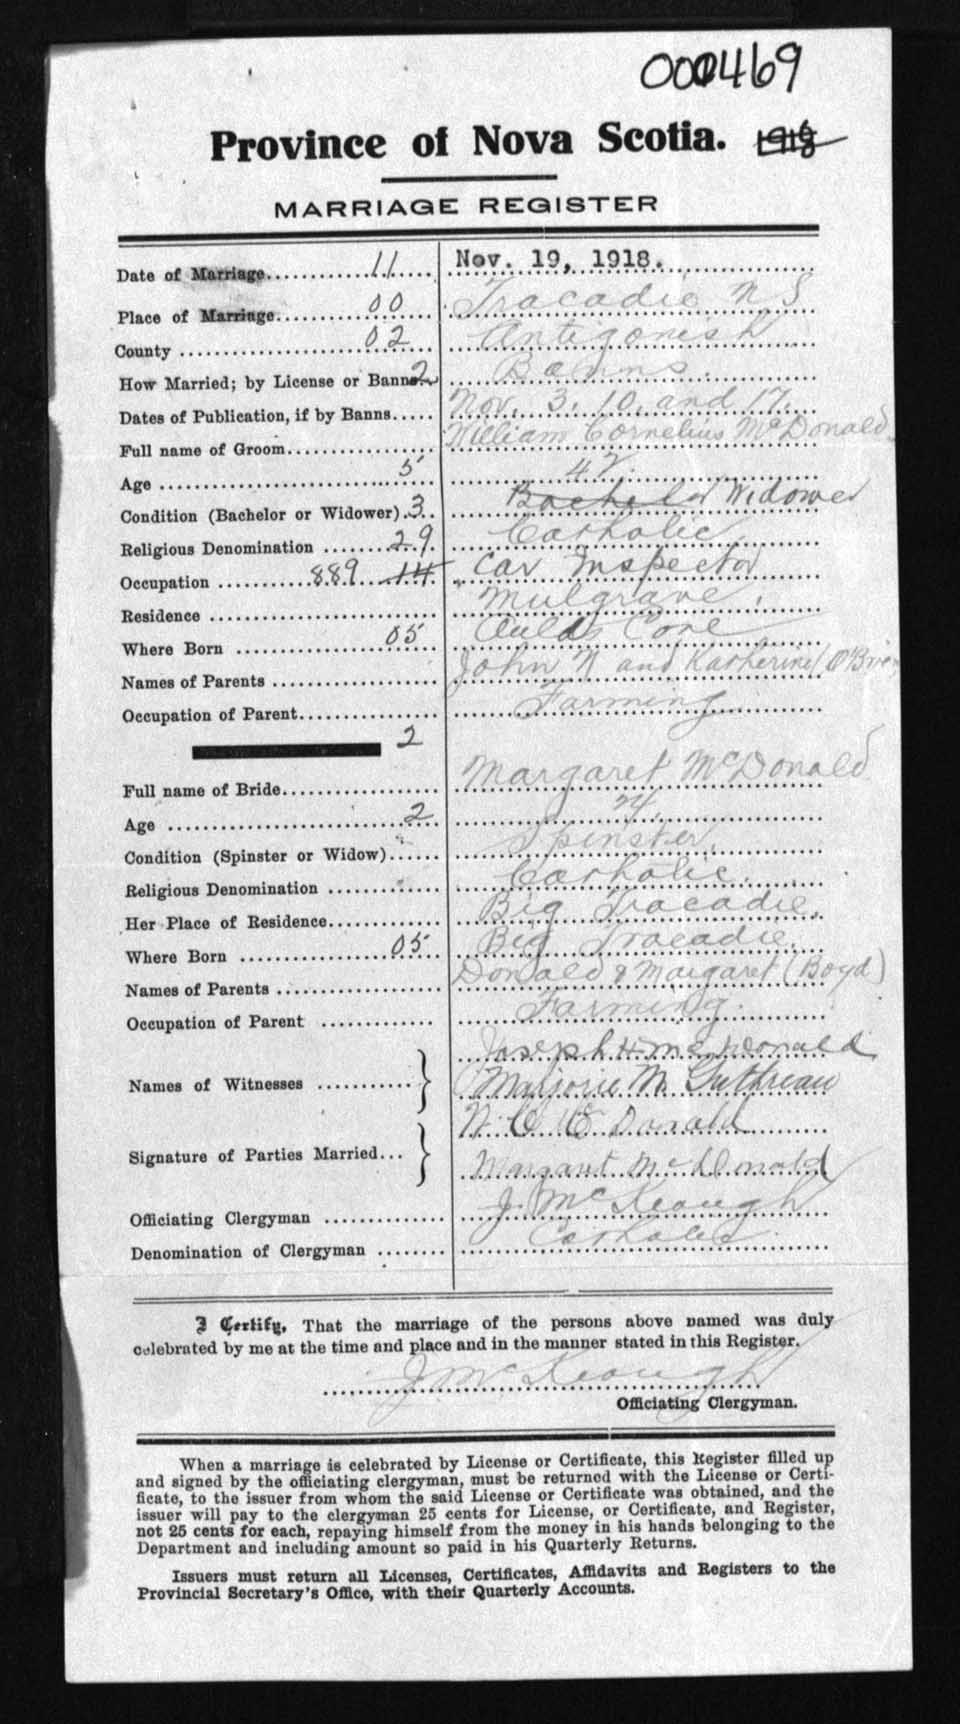 000469
Province of Nova Scotia. 1918
MARRIAGE REGISTER
Date of Marriage 11 Nov. 19, 1918.
Place of Marriage 00 Tracadie N S
County 02 Antigonish
How Married; by License or Banns 2 Banns.
Dates of Publication, if by Banns Nov. 3, 10, and 17.
Full name of Groom William Cornelius McDonald
Age 5 42.
Condition (Bachelor or Widower) 3 Bachelor Widower
Religious Denomination 29 Catholic
Occupation 889 14 Car Inspector
Residence Mulgrave.
Where Born 05 Aulds Cove
Names of Parents John N and Katherine O'Brien
Occupation of Parent Farming
2
Full name of Bride Margaret McDonald
Age 2 24.
Condition (Spinster or Widow) Spinster.
Religious Denomination Catholic.
Her Place of Residence Big Tracadie.
Where Born 05 Big Tracadie.
Names of Parents Donald & Margaret (Boyd)
Occupation of Parent Farming.
Joseph H McDonald
Names of Witnesses } Marjorie M.
McDonald
Signature of Parties Married } Margaret McDonald
Officiating Clergyman J. McKeough
Denomination of Clergyman Catholic
I Certify, That the marriage of the persons above named was duly
celebrated by me at the time and place and in the manner stated in this Register.
J McKeough
Officiating Clergyman.
When a marriage is celebrated by License or Certificate, this Register filled up
and signed by the officiating clergyman, must be returned with the License or Certi-
ficate, to the issuer from whom the said License or Certificate was obtained, and the
issuer will pay to the clergyman 25 cents for License, or Certificate, and Register,
not 25 cents for each, repaying himself from the money in his hands belonging to the
Department and including amount so paid in his Quarterly Returns.
Issuers must return all Licenses, Certificates, Affidavits and Registers to the
Provincial Secretary's Office, with their Quarterly Accounts.